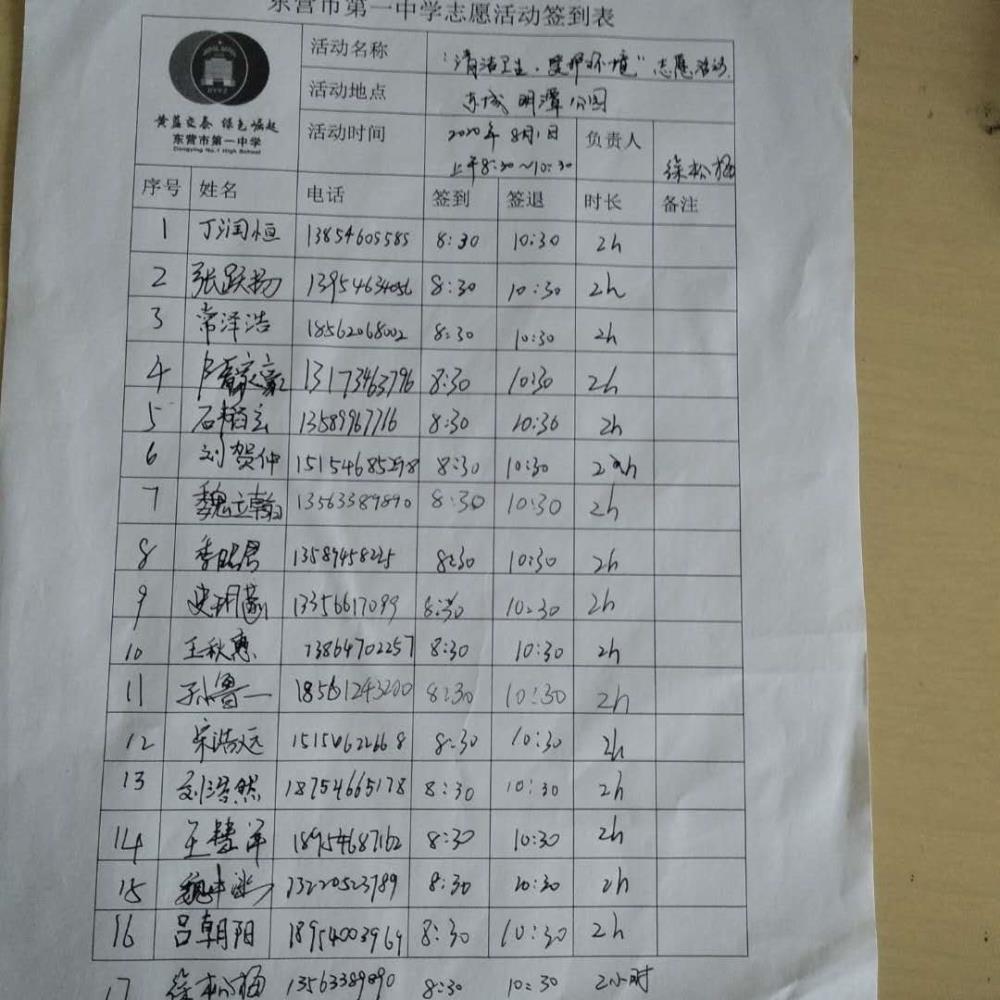 东营市第一中学志愿活动签到表
黄蓝交泰 绿色崛起
东营市第一中学
Dongying No.1 High School
活动名称 "清洁卫生,爱护环境"志愿活动
活动地点 东城 明潭公园
活动时间 2020年8月1日 上午8:30~10:30 负责人 徐松梅
序号 姓名 电话 签到 签退 时长 备注
1 丁润恒 13854605585 8:30 10:30 2h
2 张跃扬 13954634056 8:30 10:30 2h
3 常泽浩 18562068002 8:30 10:30 2h
4 13173463796 8:30 10:30 2h
5 13589967716 8:30 10:30 2h
6 刘贺仲 15154685298 8:30 10:30 2h
7 魏立翰 13563389890 8:30 10:30 2h
8 8:30 10:30 2h
9 13356617099 8:30 10:30 2h
10 王秋惠 13864702257 8:30 10:30 2h
11 孙鲁一 18561243200 8:30 10:30 2h
12 宋浩远 8:30 10:30 2h
13 刘浩然 18754665178 8:30 10:30 2h
14 18954687162 8:30 10:30 2h
15 13220523789 8:30 10:30 2h
16 吕朝阳 18954003969 8:30 10:30 2h
17 徐松梅 13563389890 8:30 10:30 2小时